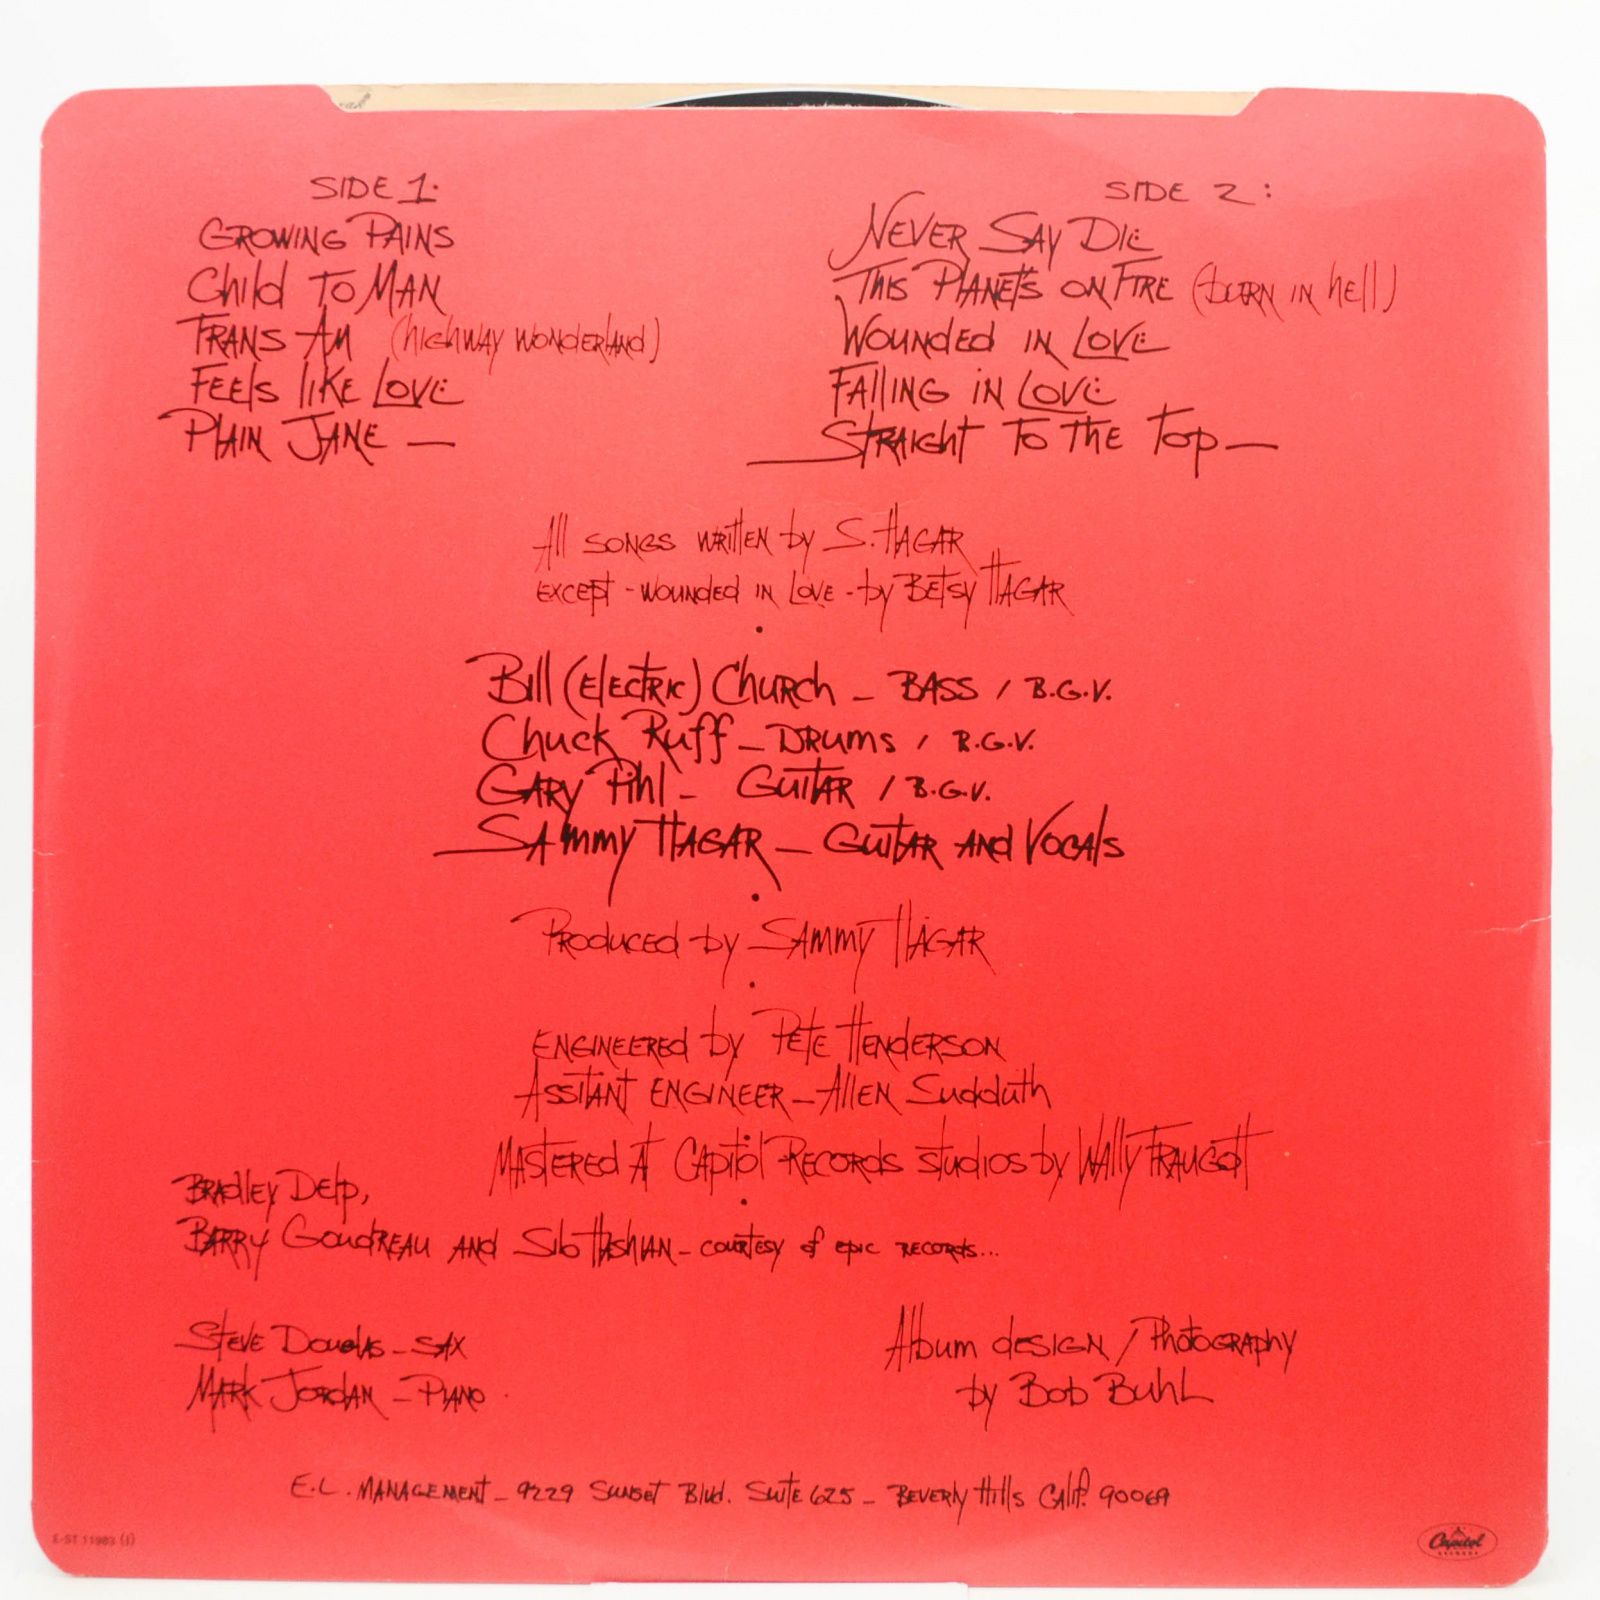 SIDE 1:
GROWING PAINS
Child TO MAN
TRANS AM (HIGHWAY WONDERLAND)
FEEls liKE LOVE
PlAIN JANE —
SIDE 2:
NEVER SAY DIE
THIS PlANET'S ON FIRE (BURN IN hEll)
WOUNDED IN LOVE
FAlliNG iN LOVE
STRAIGht TO THE TOP —
All SONGS WRITTEN by S. HAGAR
EXCEPT - WOUNDED IN LOVE - by BETSY HAGAR
Bill (ElEctRic) ChURCh — BASS / B.G.V.
Chuck Ruff — DRums / B.G.V.
GARY Pihl — GuiTAR / B.G.V.
SAmmy HAGAR — GuiTAR AND VocAls
PRODUCED by SAMMY HAGAR
ENGINEERED by PETE HENDERSON
ASSITANT ENGINEER — AllEN Sudduth
MASTERED AT CApitol RECORDS studios by WAlly TRAUGOTT
BRAdlEY DElp,
BARRY GoudREAU AND Sib HAShIAN — couRTEsy of epic RECORds...
STEVE DouglAS — SAX
MARK JORDAN — PIANO
Album dESIGN / PhotoGRAphy
by BOB BUhL
E.L. MANAGEMENT — 9229 SuNSET Blvd. SuitE 625 — BEVERly Hills CAlif. 90069
E-ST 11983 (1)
Capitol
RECORDS